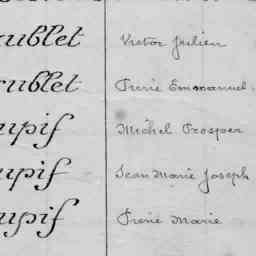 ublet Victor Julien
rublet Pierre Emmanuel.
upif Michel Prosper
upif Jean Marie Joseph
upif Pierre Marie